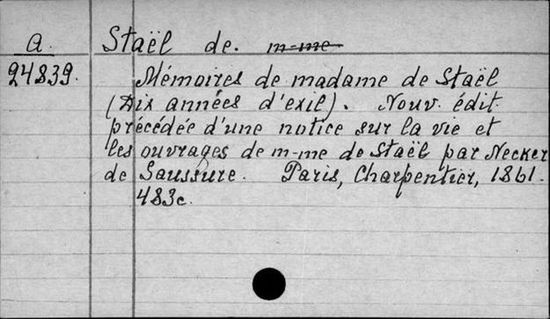 A. Staël de. m-me
24839. Mémoires de madame de Staël
(Dix années d'exil). Nouv. édit.
précédée d'une notice sur la vie et
les ouvrages de m-me de Staël par Necker
de Saussure. Paris, Charpentier, 1861.
483c.